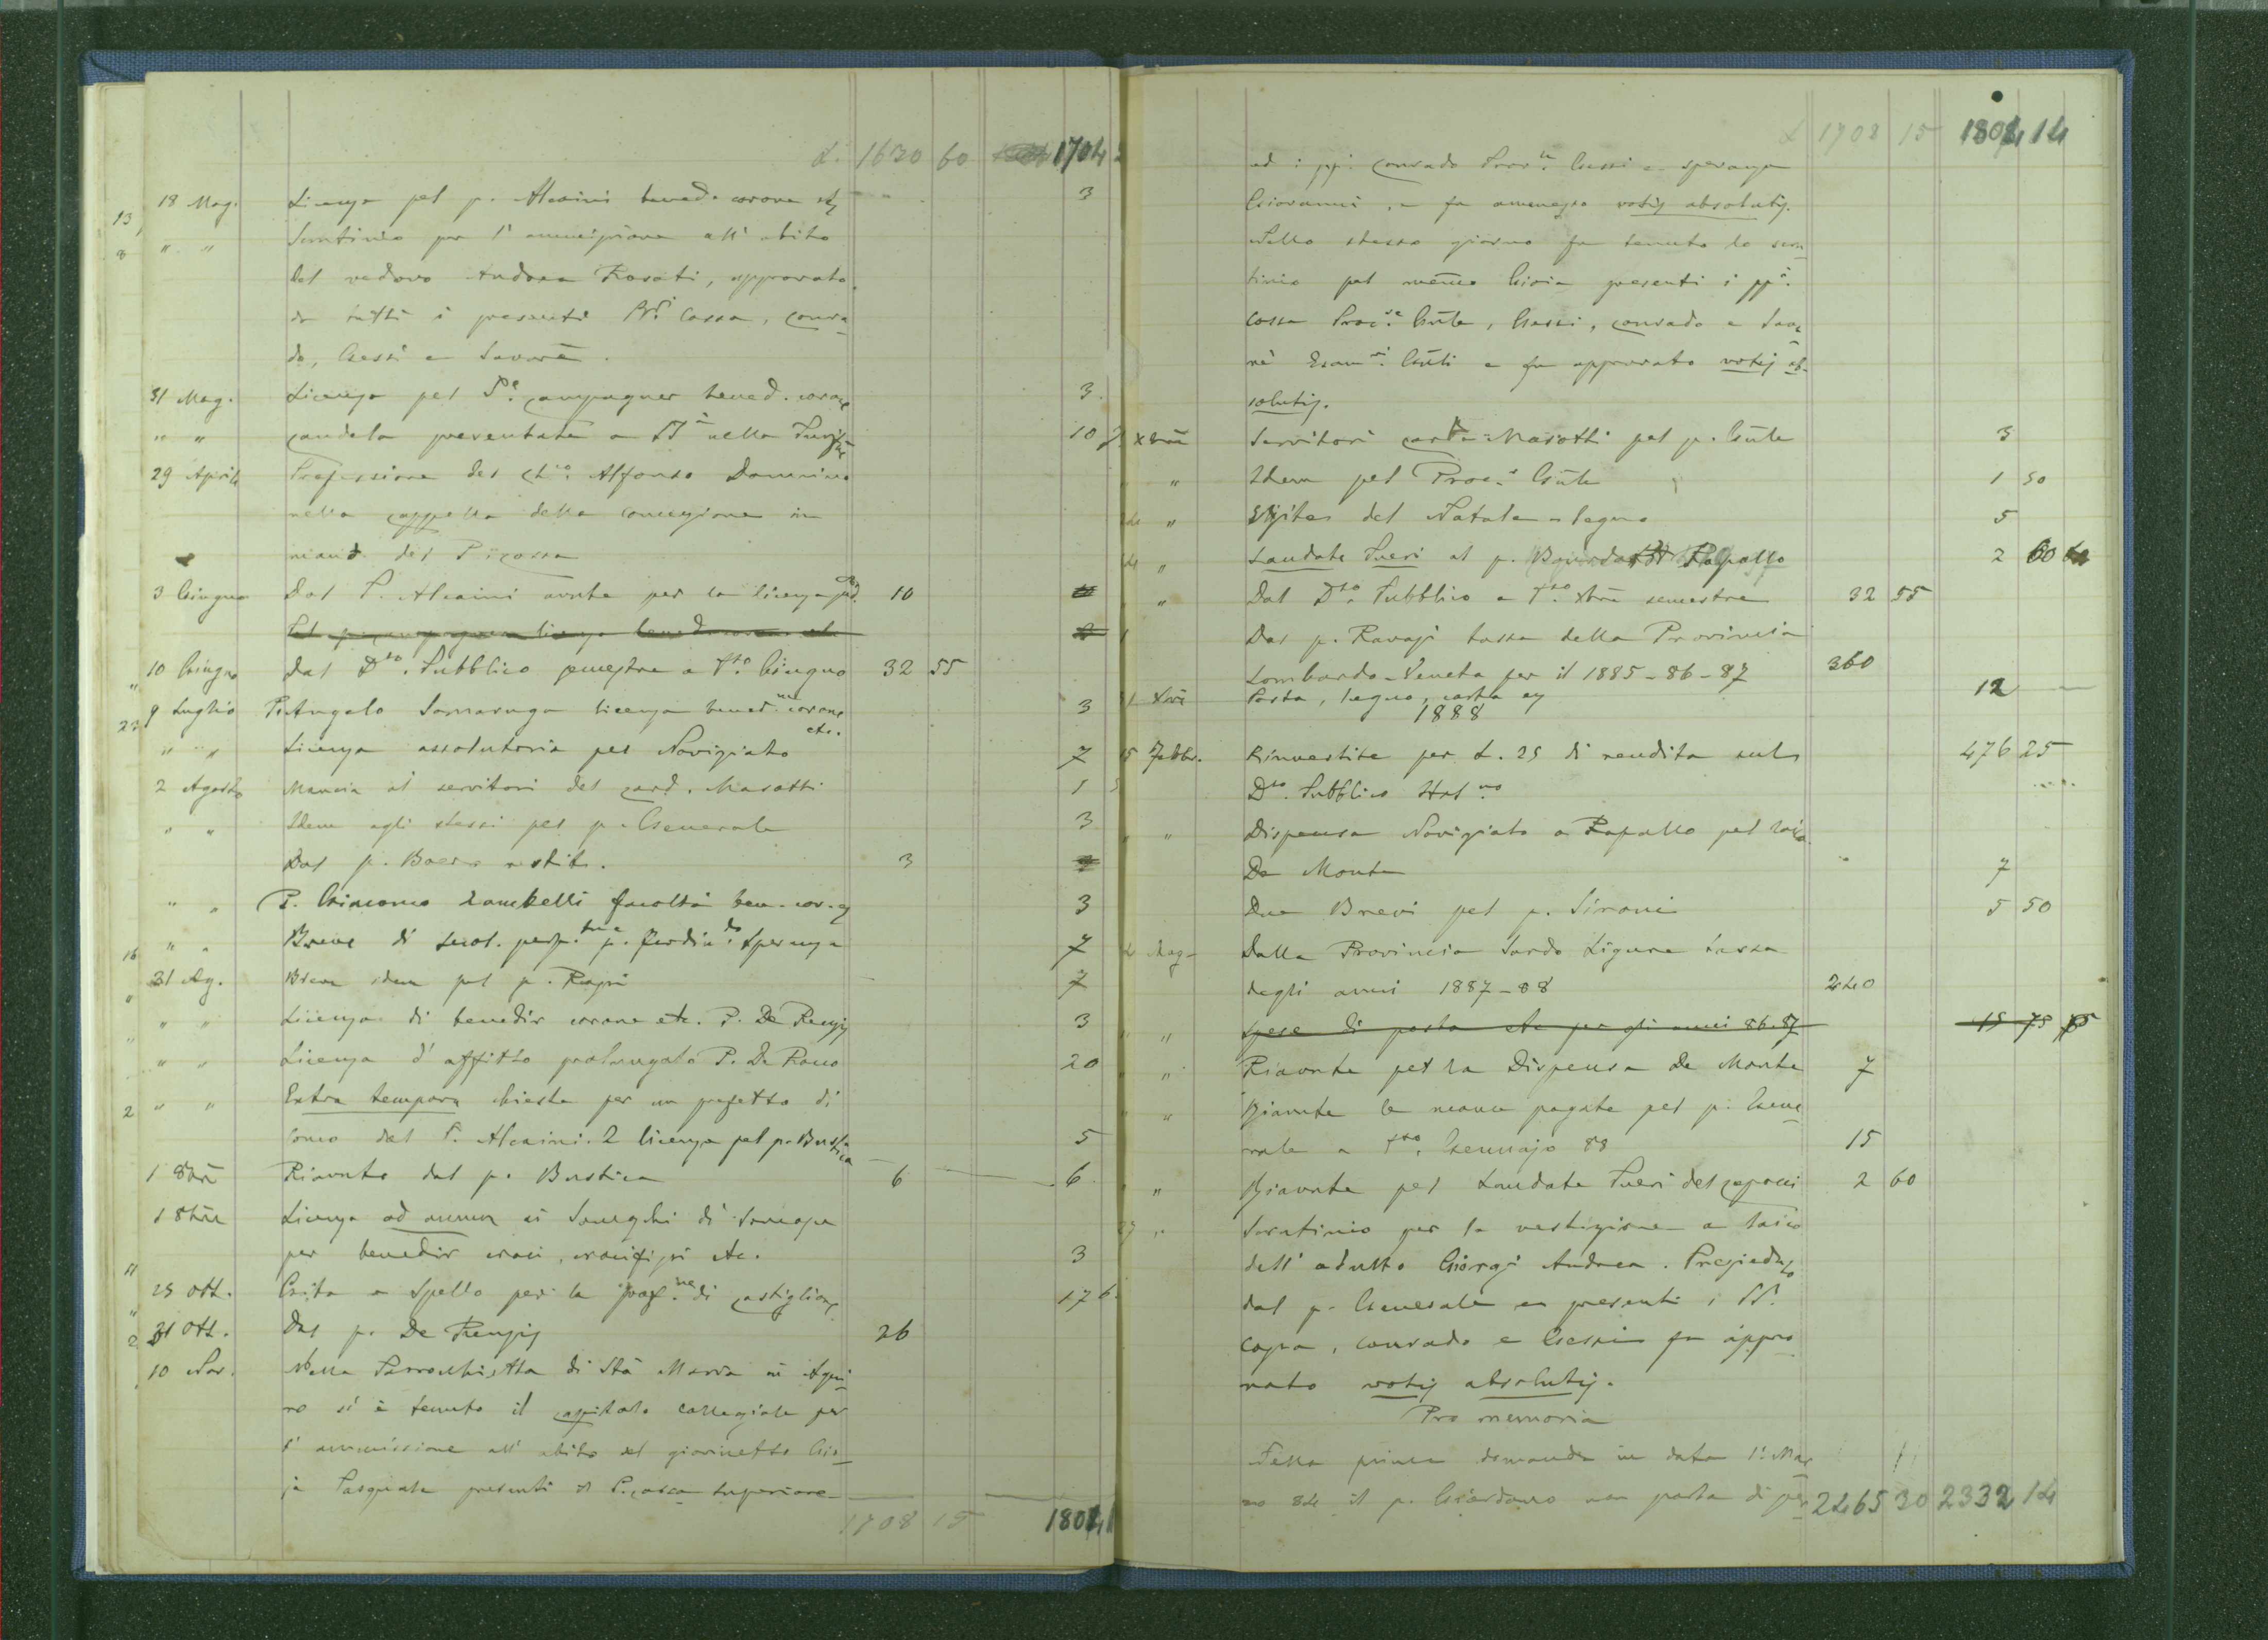 L. 1630 60 1704
18 Mag. Licenza pel p. Alcaini bened. corone etz 3
" " Scrutinio per l'ammissione all'abito
del vedovo Andrea Rosati, approvato
da tutti i presenti PP. Cossa, Conra-
do, Gessi e Savarè.
31 Mag. Licenza pel P. Campagner bened. corone 3
" " Candela presentata a SS nella 10
29 Aprile Professione del Ch. Alfonso Dominico
nella cappella della concezione in
mano del P. Cossa
3 Giugno Dal P. Alcaini avute per la licenza 10
Pel p. Campagner licenza bened. corone etc
10 Giugno Dal Dto. Pubblico semestre a Tto. Giugno 32 55
9 Luglio P. Angelo Samaruga licenza bened. corone etc. 3
" " Licenza assolutoria pel Noviziato 7
2 Agosto Mancia ai servitori del Card. Masotti 1
" " Idem agli stessi pel p. Generale 3
Dal p. Boero restit. 3
" " P. Giacomo Zambelli facoltà ben. cor. 3
16 " " Breve di secol. perp. p. Ferdin.do Speranza 7
31 Ag. Breve idem pel p. 7
" " Licenza di benedir corone etc. P. De Renzis 3
" " Licenza d'affitto prolungato P. De Rocco 20
2 " " Extra tempora chiesta per un prefetto di
Como dal P. Alcaini. 2 licenza pel p. Bustica 5
1 8bre Riavuto dal p. Bustica 6 6
1 8bre Licenza ad annum ai di Somasca
per benedir croci, crocifissi etc. 3
25 ott. Gita a Spello per la prof.ne di Castiglione 17 6
31 ott. Dal p. De Renzis 26
10 Nov. Nella Parrocchietta di Sta Maria in Aqui-
ro si è tenuto il capitolo collegiale per
l'ammissione all'abito del giovinetto Gio-
ja Pasquale presenti il P. Cossa Superiore
1708 15 1804 1
L 1708 15 1804 14
ed i pp. Conrado Gessi e Speranza
Giovanni, e fu ammesso votis absolutis.
Nello stesso giorno fu tenuto lo scru
tinio pel Gioia presenti i pp.
Cossa Proc.re Gnle, Gessi, Conrado e Sava
rè Esam.ri Gnli e fu approvato votis ab-
solutis.
Xbre Servitori Card. Masotti pel p. Gnle 3
" Idem pel Proc. Gnle 1 50
" del Natale - legno 5
" Laudate Pueri al p. Rapallo 2 60
" Dal Dto. Pubblico a Tto. Xbre semestre 32 55
Dal p. Ravasi tassa della Provincia
Lombardo-Veneta per il 1885-86-87 360
31 Xbre Posta, legno, carta 12
1888
15 Febbr. Rinvestite per L. 25 di rendita sul 476 25
Dto. Pubblico Ital.no
" Dispensa Noviziato a Rapallo pel laico
De Monte 7
Due Brevi pel p. Sironi 5 50
Mag- Dalla Provincia Sardo Ligure tassa
degli anni 1887-88 240
" Spese di posta etc per gli anni 86-87 15 75
" Riavute pel la Dispensa De Monte 7
" Riavute le mance pagate pel p. Gene
rale a Tto. Gennajo 88 15
" Riavute pel Laudate Pueri del 2 60
27 " Scrutinio per la vestizione a laico
dell'adulto Giorgi Andrea. Presieduto
dal p. Generale e presenti i PP.
Cossa, Conrado e Gessi fu appro
vato votis absolutis.
Pro memoria
Nella prima domanda in data 1. Mar
zo 84 il p. Giordano non parla di per
2465 30 2332 14